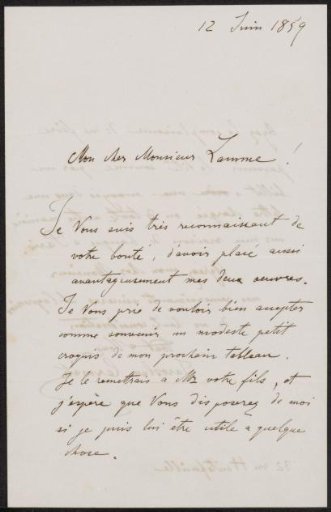 12 Juin 1859
Mon cher Monsieur Lamme !
Je Vous suis très reconnaissant de
votre bonté, d'avoir placé aussi
avantageusement mes deux oeuvres.
Je Vous prie de vouloir bien accepter
comme souvenir un modeste petit
croquis de mon prochain tableau.
Je le remettrais a Mr votre fils, et
j'espère que Vous disposerez de moi
si je puis lui être utile a quelque
chose.